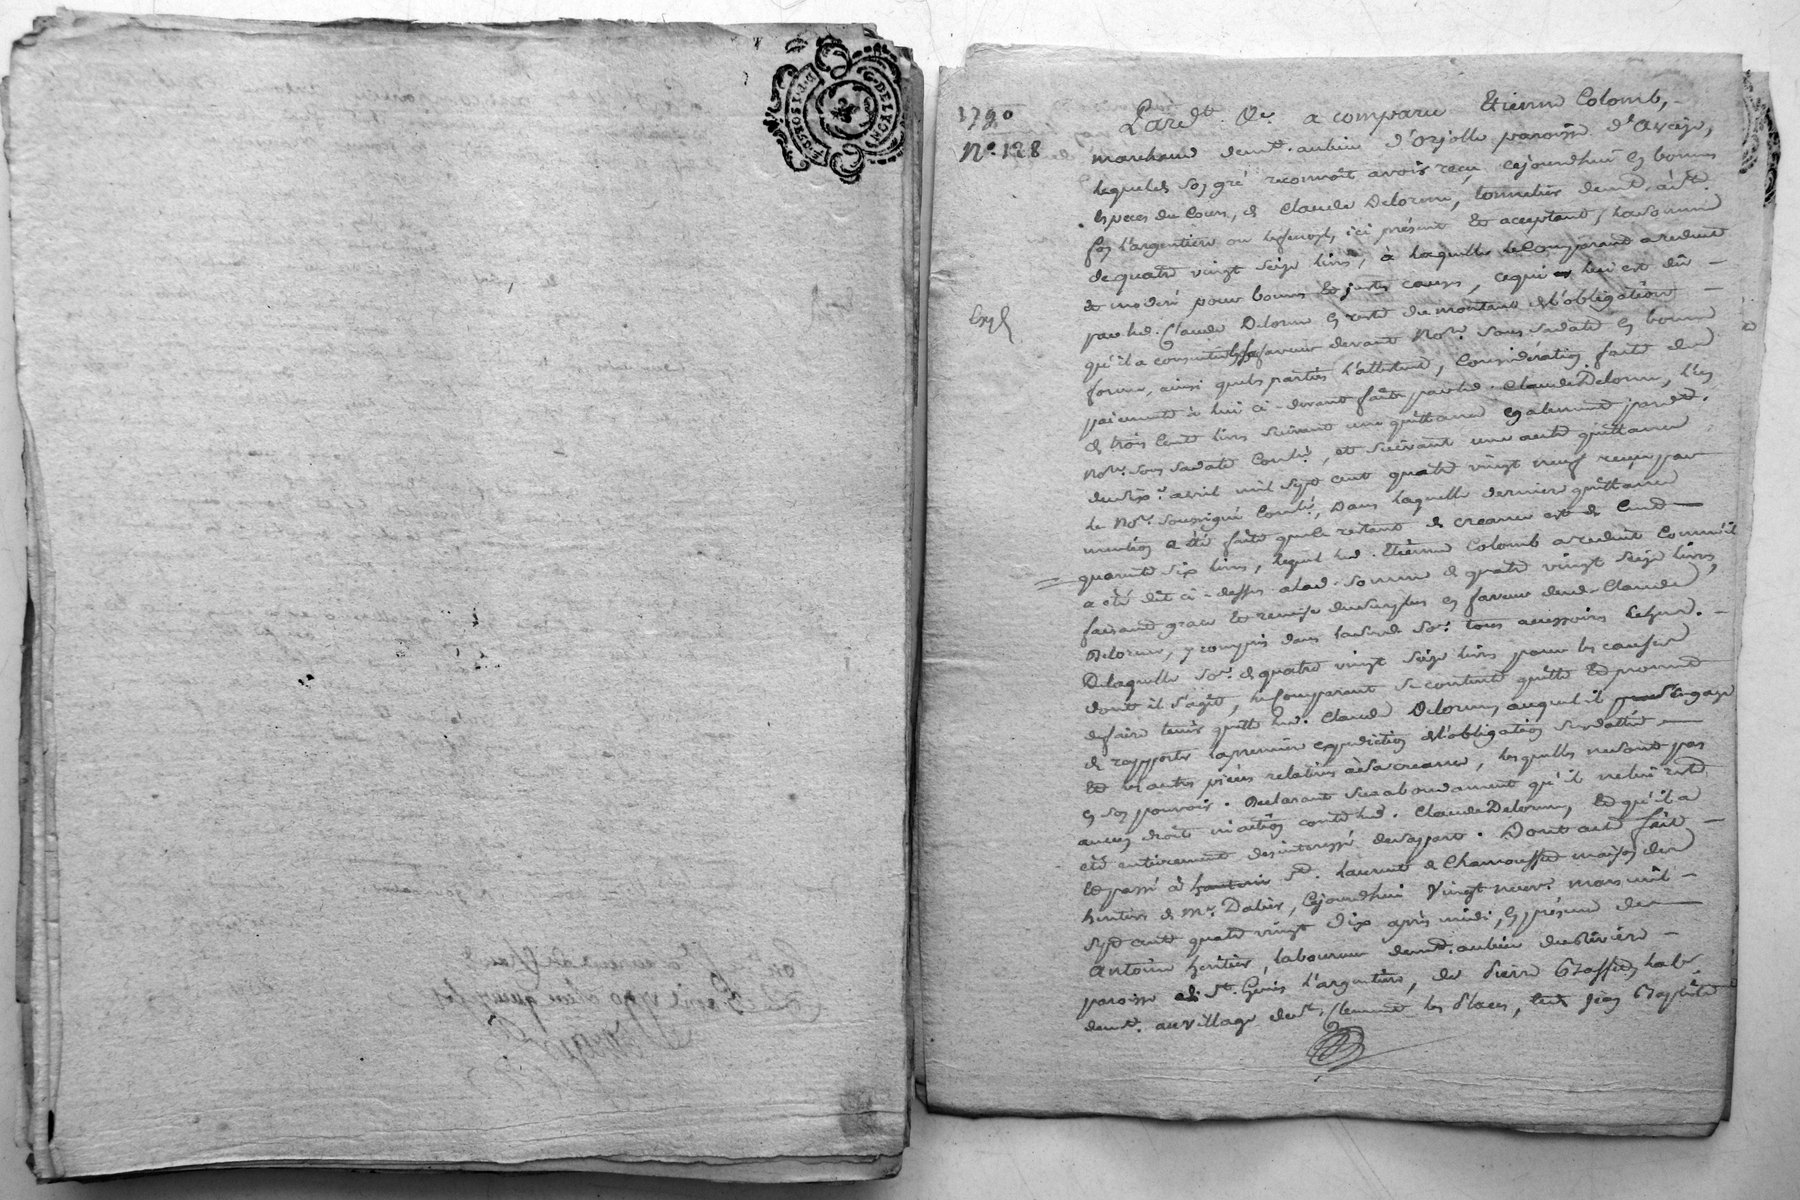 G. DE LYON
1790
N.º 128
Pardt. &e. a comparu Etienne Colomb,
marchand demt. au lieu d'Orjolle paroisse d'Aveize,
lequel de son gré reconnoît avoir reçu cejourd'hui en bonnes
especes du Cours, de Claude Delorme, tonnelier demt. à St.
l'argentiere ici présent et acceptant, la somme
de quatre vingt seize livres, à laquelle le Comparant a reduit
et moderé pour bonnes et justes causes, ce qui lui est dû
par led. Claude Delorme en reste du montant de l'obligation
qu'il a consentie en sa faveur devant Nore. Sous sa date en bonne
forme, ainsi que les parties l'attestent, Considération faite des
paiements à lui ci-devant faits par led. Claude Delorme, l'un
de trois Cents livres suivant une quittance également pardt.
Nore. sous sa date Contr., et suivant une autre quittance
du six avril mil sept cent quatre vingt neuf reçue par
le Nore. soussigné Contr., Dans laquelle derniere quittance
mention a été faite que le restant de creance est de Cent
quarante six livres, lequel led. Etienne Colomb a reduit Comme il
a été dit ci-dessus a lad. somme de quatre vingt seize livres,
faisant grace et remise du surplus en faveur dud. Claude
Delorme, y compris dans lad. somme tous accessoires
De laquelle some. de quatre vingt seize livres pour les causes
dont il s'agit, le Comparant se contente quitte et promet
de faire tenir quitte led. Claude Delorme, auquel il s'engage
de rapporter la premiere expedition de l'obligation susdatée
et les autres pieces relatives à sa creance, lesquelles ne sont pas
en son pouvoir. Declarant surabondamment qu'il ne lui reste
aucun droit ni action contre led. Claude Delorme, et qu'il a
été entierement desinteressé de sa part. Dont acte fait
et passé à St. Laurent de Chamousset maison des
heritiers de Mr. Dalier, Cejourd'hui Vingt neuf mars mil
sept cent quatre vingt dix après midi, en présence de
Antoine heritier, laboureur demt. au lieu de
paroisse de St. Genis l'argentiere, de Pierre labr.
demt. au village de St. Clement les Places, et Jean Baptiste